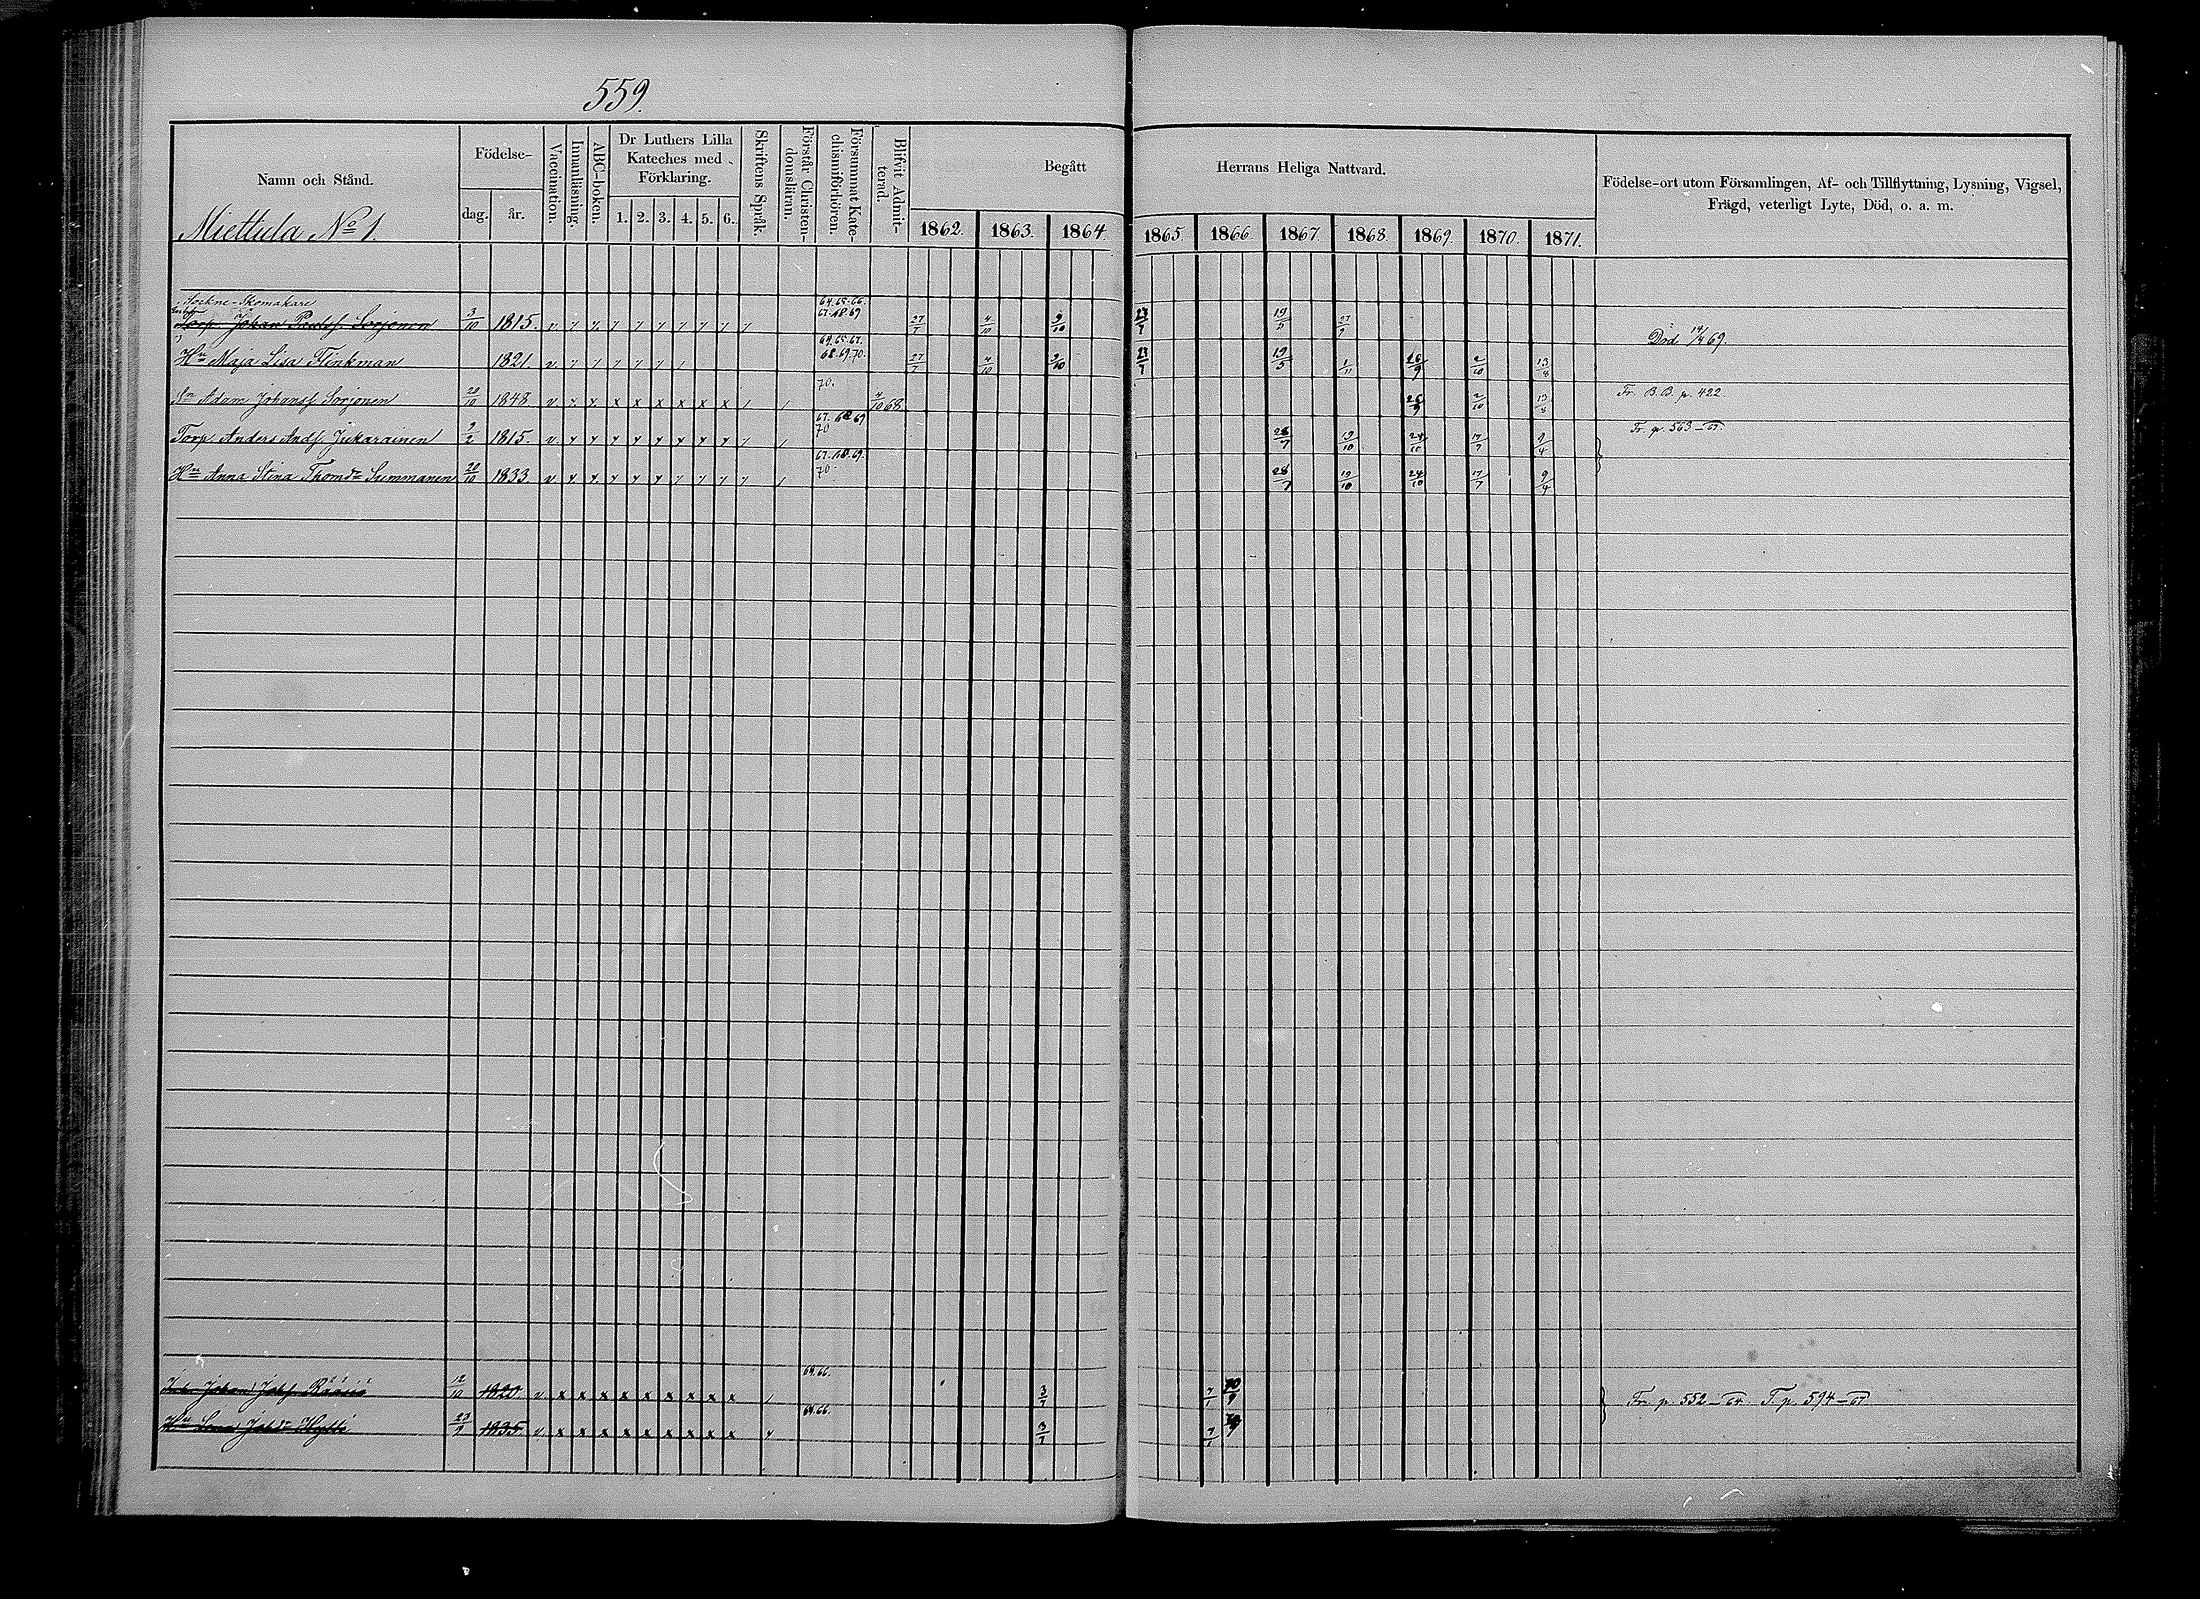 559.
Namn och Stånd.
Födelse-
dag. år.
Vaccination.
Innanläsning.
ABC-boken.
Dr Luthers Lilla Kateches med Förklaring.
1. 2. 3. 4. 5. 6.
Skriftens Språk.
Förstår Christendomsläran.
Försummat Katechismiförhören.
Blifvit Admitterad.
Begått Herrans Heliga Nattvard.
1862. 1863. 1864. 1865. 1866. 1867. 1868. 1869. 1870. 1871.
Födelse-ort utom Församlingen, Af- och Tillflyttning, Lysning, Vigsel,
Frägd, veterligt Lyte, Död, o. a. m.
Miettula No 1.
Sockne-Skomakare 64.65.66.
Torp. Johan Paulss. Sorjonen 3/10 1815. v. 67.68.69 27/7 4/10 9/10 23/7 19/5 27/9 Död 14/4 69.
64.65.67.
Hu Maja Lisa Flinkman 1821. v. 68.69.70. 27/7 4/10 9/10 23/7 19/5 1/11 26/9 2/10 13/8
Sn Adam Johanss. Sorjonen 20/10 1848 v x x x x x x 70. 4/10 68. 26/9 2/10 13/8 Fr. B.B. p. 422.
Torp. Anders Ands. Jukarainen 9/2 1815. v. 67.68.69 70 28/7 19/10 24/10 17/7 9/4 Fr. p. 563-67.
Hu Anna Stina Thomdr Summanen 20/10 1833 v 67.68.69. 70. 28/7 19/10 24/10 17/7 9/4
Johan Johs. Rääsiä 12/10 1820 v x x x x x x x x 64.66. 3/7 7/1 30/9 Fr. p. 552-64. T. p. 594-67
Hu Lena Johdr Hytti 23/9 1835 v x x x x x x x x 64.66. 3/7 7/1